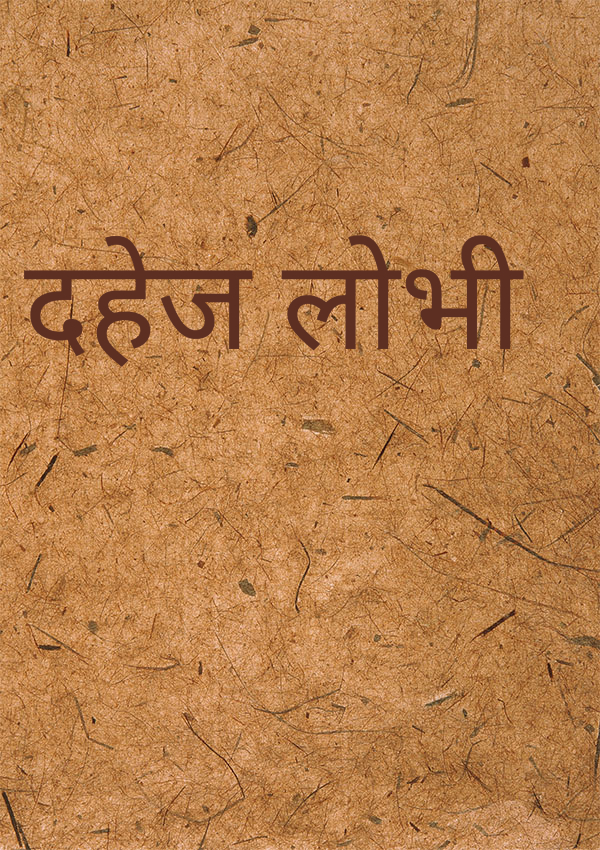 दहेज लोभी